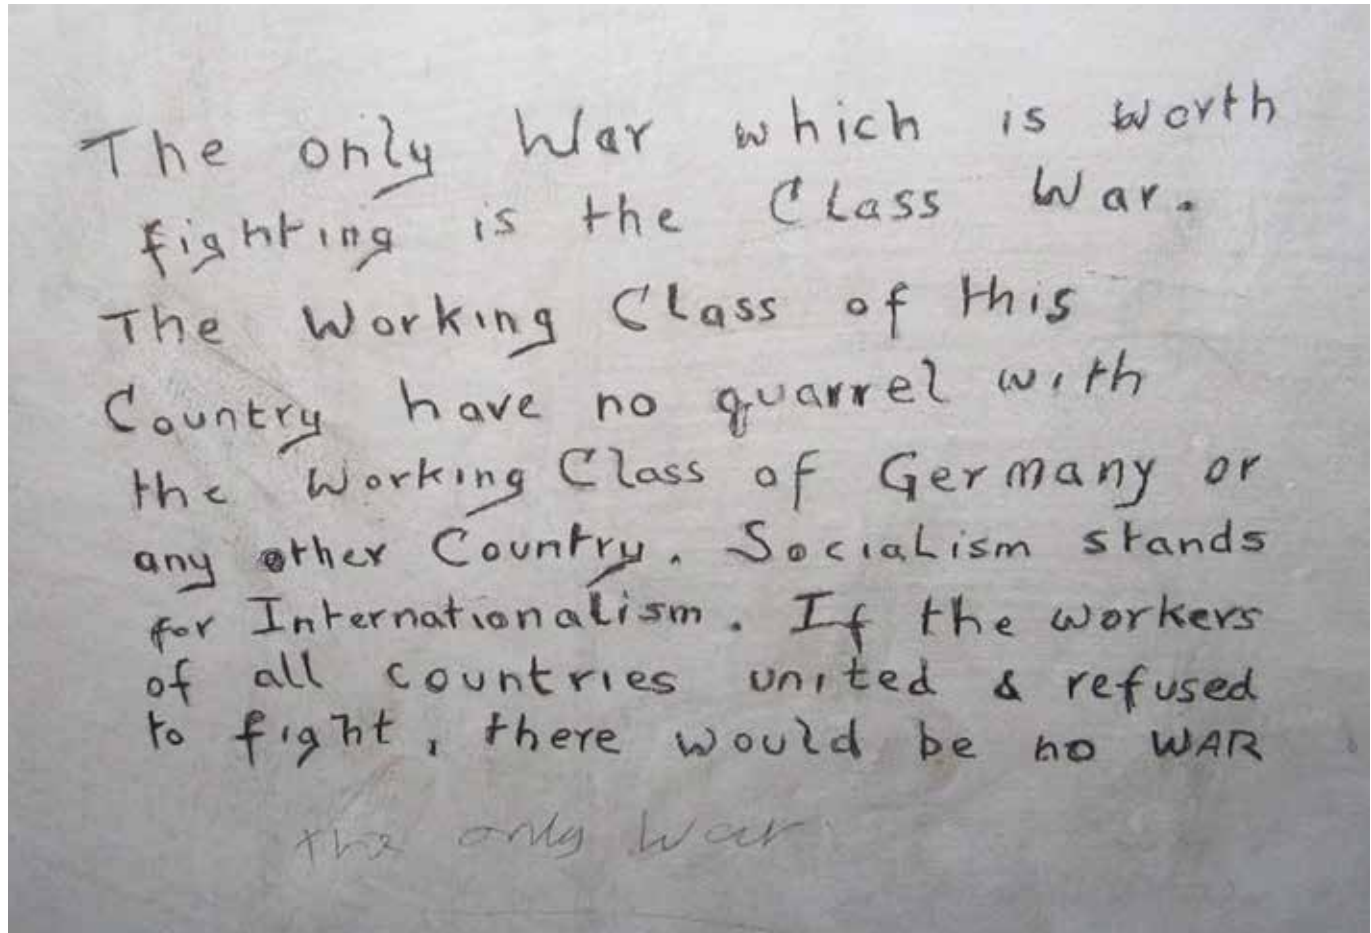 The only War which is worth
fighting is the Class War.
The Working Class of this
Country have no quarrel with
the Working Class of Germany or
any other Country. Socialism stands
for Internationalism. If the workers
of all countries united & refused
to fight, there would be no WAR
the only war